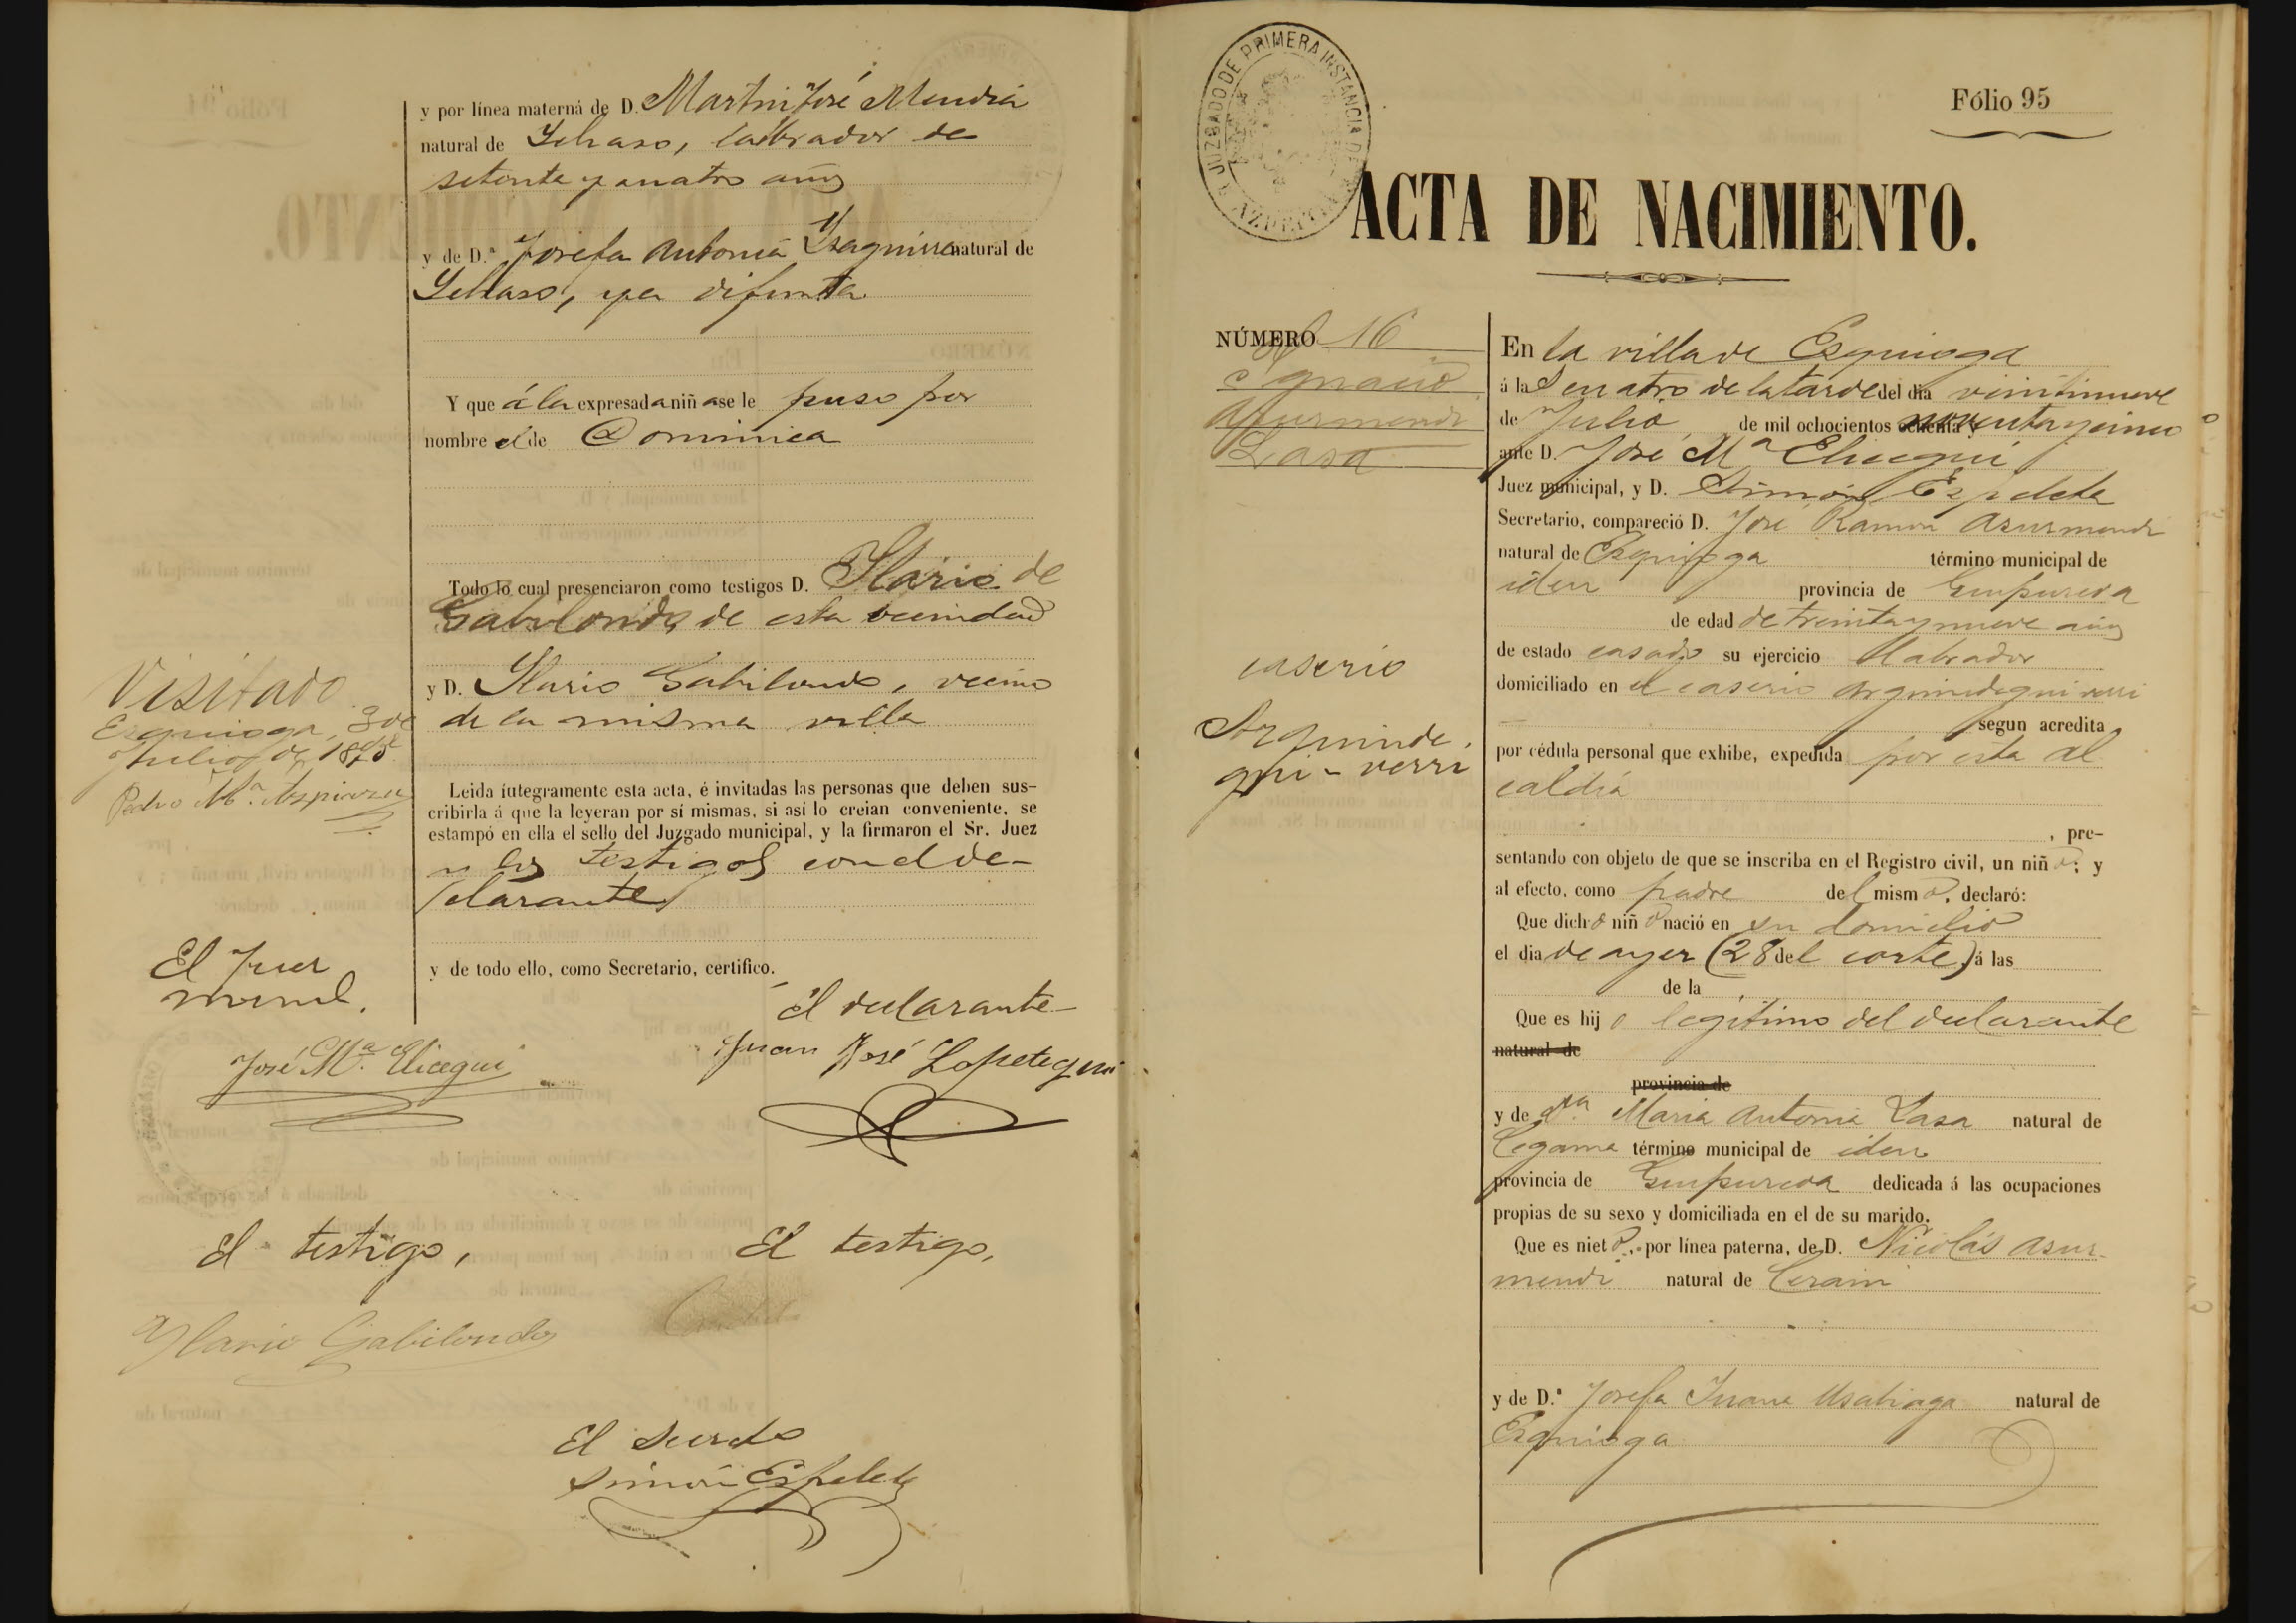 y por línea materna de D. Martin José Mendia
natural de Ychaso, labrador de
setenta y cuatro años
y de D.ª Josefa Antonia Yzaguirre natural de
Ychaso, ya difunta
Y que á la expresada niña se le puso por
nombre el de Dominica
Todo lo cual presenciaron como testigos D. Ylario de
Gabilondo, de esta vecindad
y D. Ylario Gabilondo, vecino
de la misma villa
Leida íntegramente esta acta, é invitadas las personas que deben sus-
cribirla á que la leyeran por sí mismas, si así lo creian conveniente, se
estampó en ella el sello del Juzgado municipal, y la firmaron el Sr. Juez
y los testigos con el de-
clarante
y de todo ello, como Secretario, certifico.
Visitado
Ezquioga, 3 de
Julio de
Pedro M.ª Azpiazu
El Juez
munl.
José M.ª Elicegui
El declarante
Juan José Lopetegui
El testigo,
El testigo,
Ylario Gabilondo
El Secreto
Simón Ezpeleta
JUZGADO DE PRIMERA INSTANCIA DE AZPEITIA
Fólio 95
ACTA DE NACIMIENTO.
NÚMERO 16
Ygnacio
Asurmendi
Lasa
caserio
Arguinde.
gui-verri
En la villa de Ezquioga
á las cuatro de la tarde del dia veintinueve
de Julio de mil ochocientos ochenta y noventa y cinco
ante D. José Mª Elicegui
Juez municipal, y D. Simón Ezpeleta
Secretario, compareció D. José Ramon Asurmendi
natural de Ezquioga término municipal de
idem provincia de Guipuzcoa
de edad de treinta y nueve años
de estado casado su ejercicio labrador
domiciliado en el caserio Arguindegui verri
segun acredita
por cédula personal que exhibe, expedida por esta al
caldia
, pre-
sentando con objeto de que se inscriba en el Registro civil, un niño; y
al efecto, como padre del mismo, declaró:
Que dicho niño nació en su domicilio
el dia de ayer (28 del corte.) á las
de la
Que es hijo legítimo del declarante
natural de
provincia de
y de Dª Maria Antonia Lasa natural de
Cegama término municipal de idem
provincia de Guipuzcoa dedicada á las ocupaciones
propias de su sexo y domiciliada en el de su marido.
Que es nieto, por línea paterna, de D. Nicolás Asur-
mendi natural de Cerain
y de D.ª Josefa Juana Usabiaga natural de
Ezquioga